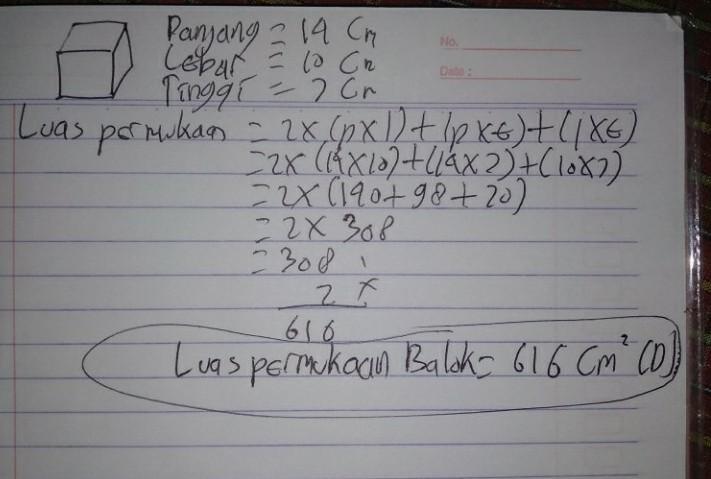 Panjang = 14 Cm
No.
Lebar = 10 Cm
Date :
Tinggi = 7 Cm
Luas permukaan = 2x (pxl) + (pxt) + (lxt)
= 2x (14x10) + (14x7) + (10x7)
= 2x (140 + 98 + 70)
= 2x 308
= 308
2 x
616
Luas permukaan Balok = 616 Cm² (D)